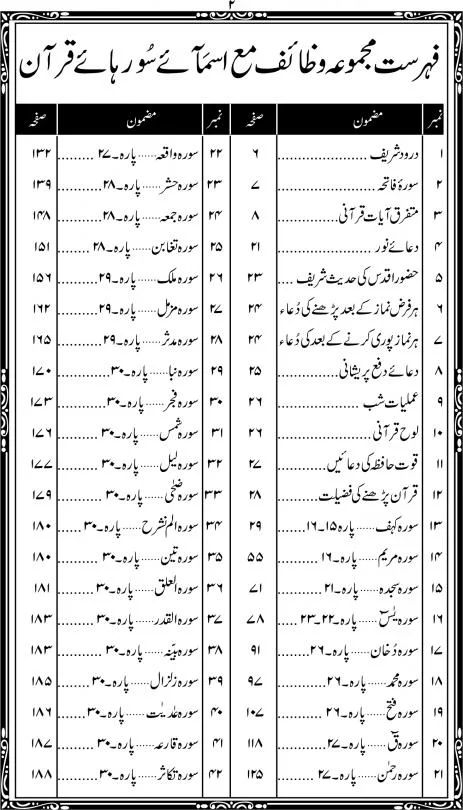 ۲
فہرست مجموعہ وظائف مع اسمآئے سُور ہائے قرآن
نمبر مضمون صفحہ
۱ درود شریف ۶
۲ سورۂ فاتحہ ۷
۳ متفرق آیات قرآنی ۸
۴ دعائے نور ۲۱
۵ حضور اقدس کی حدیث شریف ۲۳
۶ ہر فرض نماز کے بعد پڑھنے کی دُعاء ۲۴
۷ ہر نماز پوری کرنے کے بعد کی دُعاء ۲۴
۸ دعائے دفع پریشانی ۲۵
۹ عملیات شب ۲۶
۱۰ لوح قرآنی ۲۶
۱۱ قوت حافظہ کی دعائیں ۲۷
۱۲ قرآن پڑھنے کی فضیلت ۲۸
۱۳ سورہ کہف ...... پارہ ۱۵۔۱۶ ۲۹
۱۴ سورہ مریم ...... پارہ۔۱۶ ۵۵
۱۵ سورہ سجدہ ...... پارہ۔۲۱ ۷۱
۱۶ سورہ یٰسٓ ...... پارہ۔۲۲۔۲۳ ۷۸
۱۷ سورہ دُخان ...... پارہ۔۲۶ ۹۱
۱۸ سورہ محمد ...... پارہ۔۲۶ ۹۷
۱۹ سورہ فتح ...... پارہ۔۲۶ ۱۰۷
۲۰ سورہ قٓ ...... پارہ۔۲۷ ۱۱۸
۲۱ سورہ رحمٰن ...... پارہ۔۲۷ ۱۲۵
نمبر مضمون صفحہ
۲۲ سورہ واقعہ ...... پارہ۔۲۷ ۱۳۲
۲۳ سورہ حشر ...... پارہ۔۲۸ ۱۳۹
۲۴ سورہ جمعہ ...... پارہ۔۲۸ ۱۴۸
۲۵ سورہ تغابن ...... پارہ۔۲۸ ۱۵۱
۲۶ سورہ ملک ...... پارہ۔۲۹ ۱۵۶
۲۷ سورہ مزمل ...... پارہ۔۲۹ ۱۶۲
۲۸ سورہ مدثر ...... پارہ۔۲۹ ۱۶۵
۲۹ سورہ نبا ...... پارہ۔۳۰ ۱۷۰
۳۰ سورہ فجر ...... پارہ۔۳۰ ۱۷۳
۳۱ سورہ شمس ...... پارہ۔۳۰ ۱۷۶
۳۲ سورہ لیل ...... پارہ۔۳۰ ۱۷۷
۳۳ سورہ ضحٰی ...... پارہ۔۳۰ ۱۷۹
۳۴ سورہ الم نشرح ...... پارہ۔۳۰ ۱۸۰
۳۵ سورہ تین ...... پارہ۔۳۰ ۱۸۰
۳۶ سورہ العلق ...... پارہ۔۳۰ ۱۸۱
۳۷ سورہ القدر ...... پارہ۔۳۰ ۱۸۳
۳۸ سورہ بیّنہ ...... پارہ۔۳۰ ۱۸۳
۳۹ سورہ زلزال ...... پارہ۔۳۰ ۱۸۵
۴۰ سورہ عٰدیٰت ...... پارہ۔۳۰ ۱۸۶
۴۱ سورہ قارعہ ...... پارہ۔۳۰ ۱۸۷
۴۲ سورہ تکاثر ...... پارہ۔۳۰ ۱۸۸